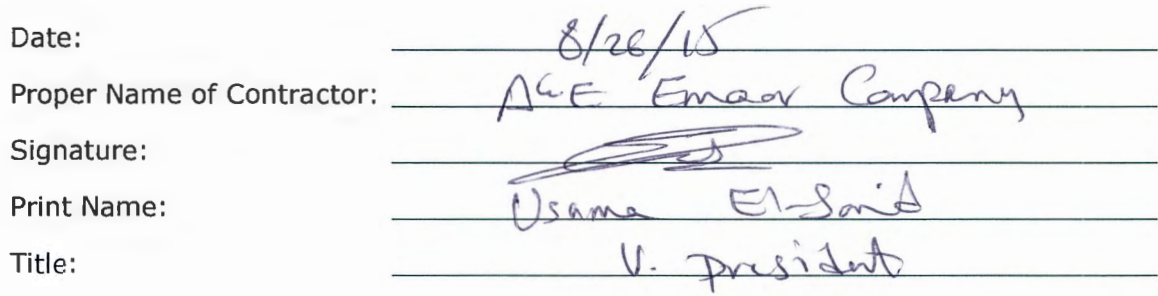 Date: 8/26/15
Proper Name of Contractor: A&E Emaar Company
Signature:
Print Name: Usama El-Said
Title: V. president